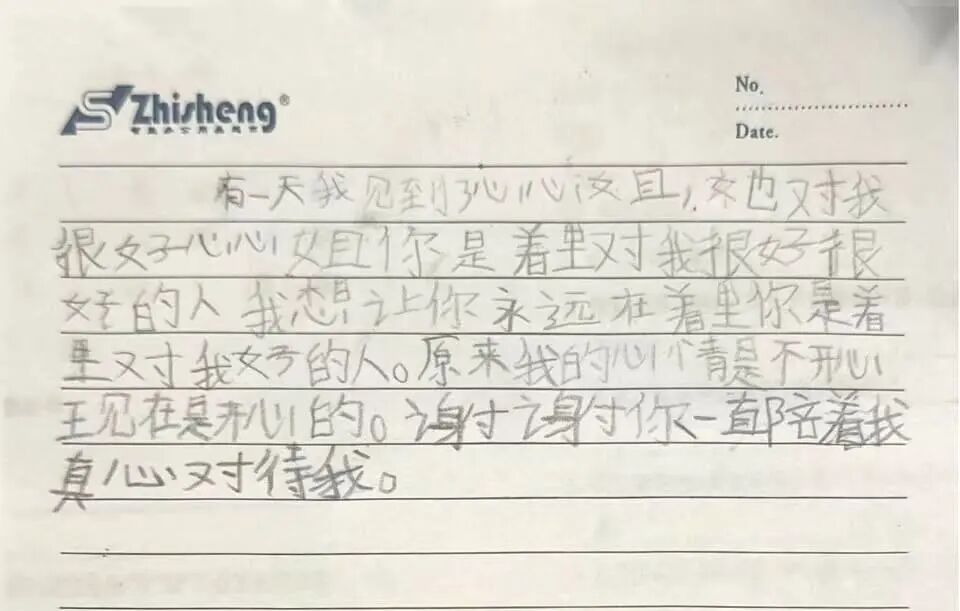 Zhisheng®
No.
Date.
有一天我见到心心姐,她对我
很好心心姐你是着里对我很好很
好的人我想让你永远在着里你是着
里对我好的人。原来我的心情是不开心
现在是开心的。谢谢你一直陪着我
真心对待我。